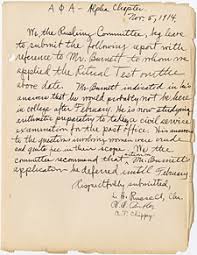 Α Φ Α - Alpha Chapter
Nov. 5, 1914.
We the Rushing Committee, beg leave
to submit the following report with
reference to Mr. Burnett to whom we
applied the Ritual Test on the
above date. Mr. Burnett indicated in his
answers that he would probably not be here
in college after February. He is now studying
arithmetic preparatory to taking a civil service
examination for the post office. His answers
to the questions involving women were crude
and quite in their scope. We the
committee recommend that Mr. Burnett's
application be deferred until February.
Respectfully submitted,